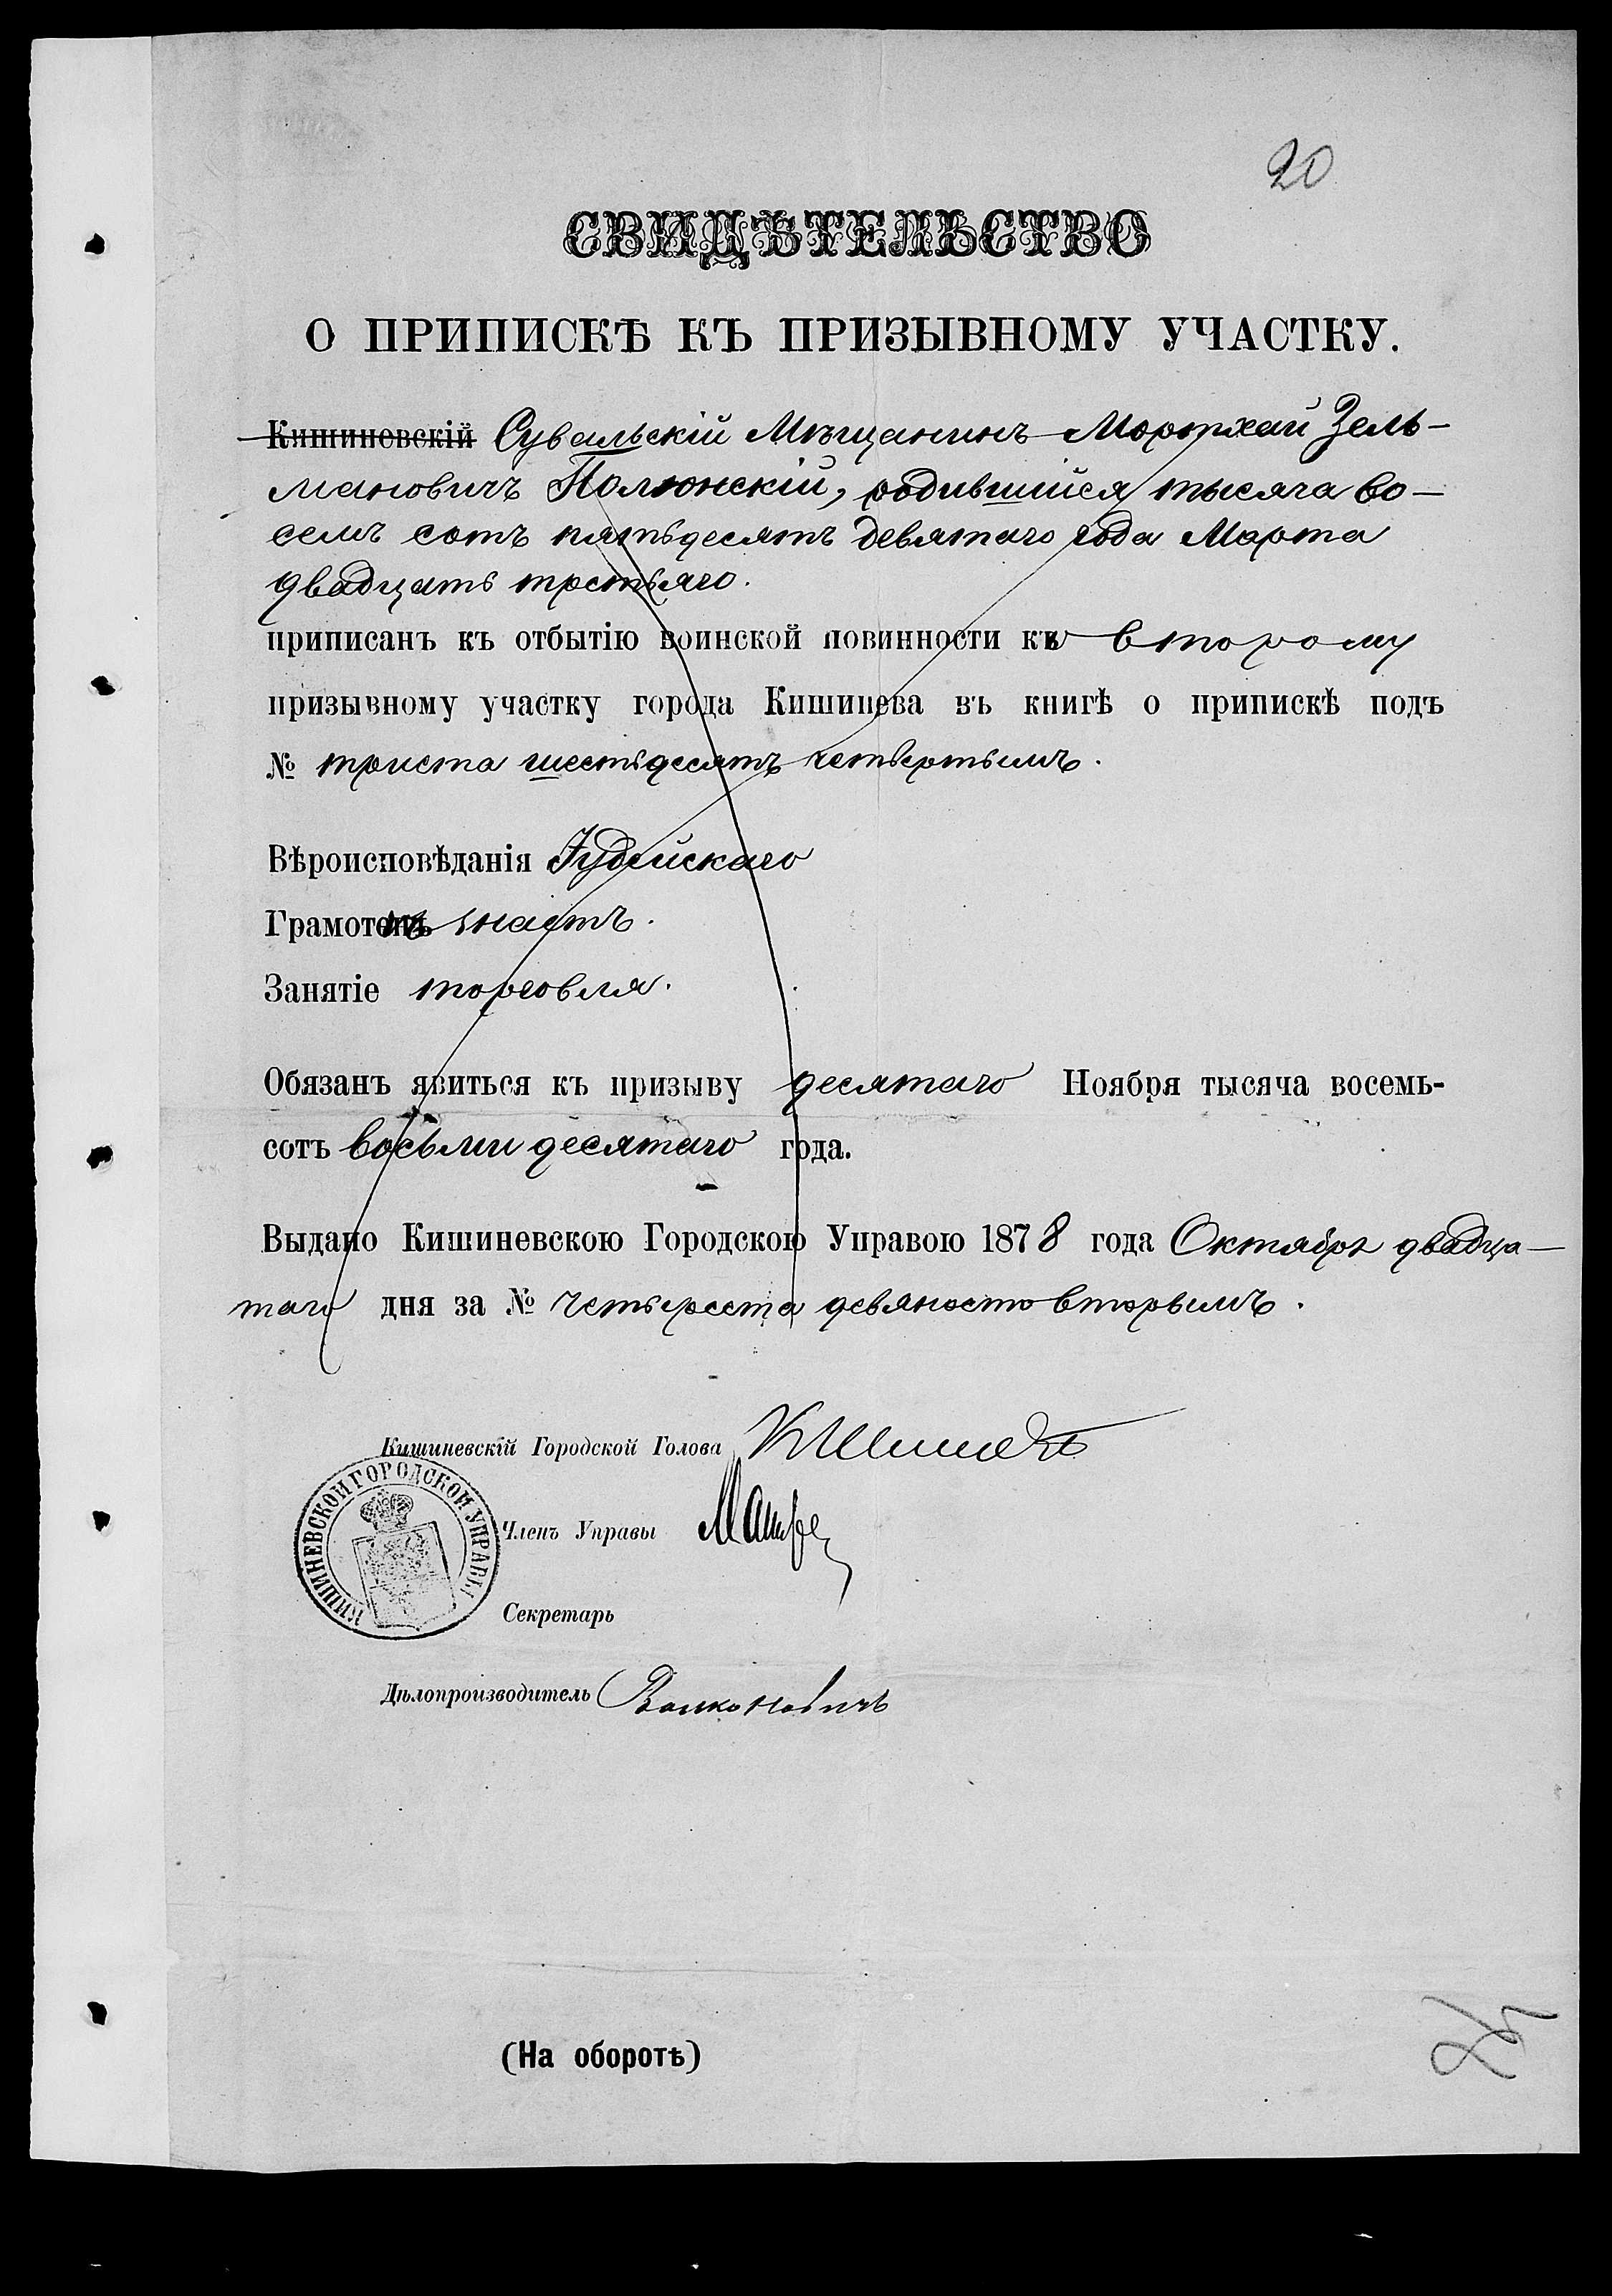 20
СВИДѢТЕЛЬСТВО
О ПРИПИСКѢ КЪ ПРИЗЫВНОМУ УЧАСТКУ.
Кишиневскій Сувальскій Мѣщанинъ Мортхай Зель-
мановичъ Полюнскій, родившийся тысяча во-
семъ сотъ пятьдесятъ девятаго года Марта
двадцать третьяго.
приписанъ къ отбытію воинской повинности ко второму
призывному участку города Кишинева въ книгѣ о припискѣ подъ
№ триста шестьдесятъ четвертымъ.
Вѣроисповѣданія Іудейскаго
Грамотѣ знаетъ.
Занятіе торговля.
Обязанъ явиться къ призыву десятаго Ноября тысяча восемь-
сотъ восьмидесятаго года.
Выдано Кишиневскою Городскою Управою 1878 года Октября двадца-
таго дня за № четыреста девяносто вторымъ.
Кишиневскій Городской Голова К Шмидтъ
КИШИНЕВСКОЙ ГОРОДСКОЙ УПРАВЫ
Членъ Управы
Секретарь
Дѣлопроизводитель
(На оборотѣ)